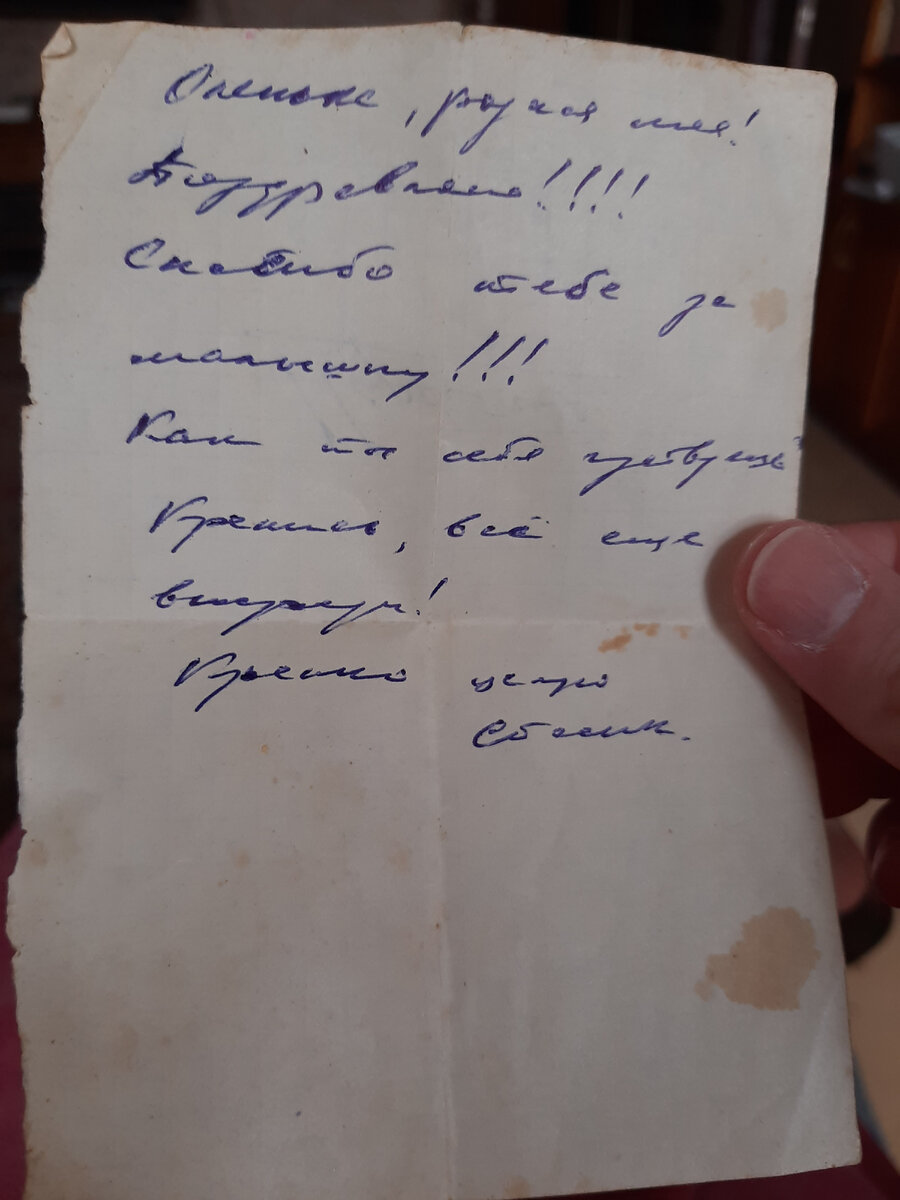 Оленька, родная моя!
Поздравляю!!!!
Спасибо тебе за
малышку!!!
Как ты себя чувствуешь
Крепись, всё еще
впереди!
Крепко целую